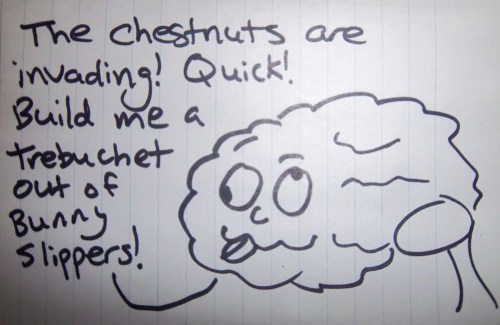 The chestnuts are
invading! Quick!
Build me a
trebuchet
out of
Bunny
slippers!